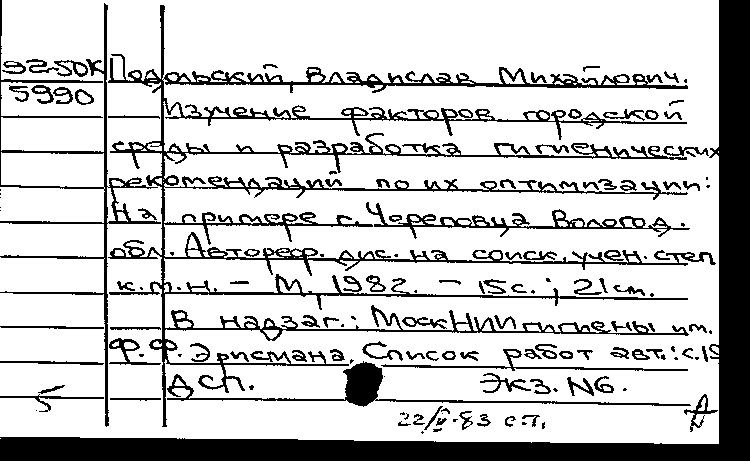 92-50К Подольский, Владислав Михайлович.
5990 Изучение факторов городской
среды и разработка гигиенических
рекомендаций по их оптимизации:
На примере г. Череповца Вологод.
обл. Автореф. дис. на соиск. учен. степ
к.м.н. – М., 1982. – 15с.; 21см.
В надзаг.: Моск НИИ гигиены им.
Ф.Ф. Эрисмана. Список работ авт.: с.15
ДСП. Экз. №6.
5
22/V-83 с.п.